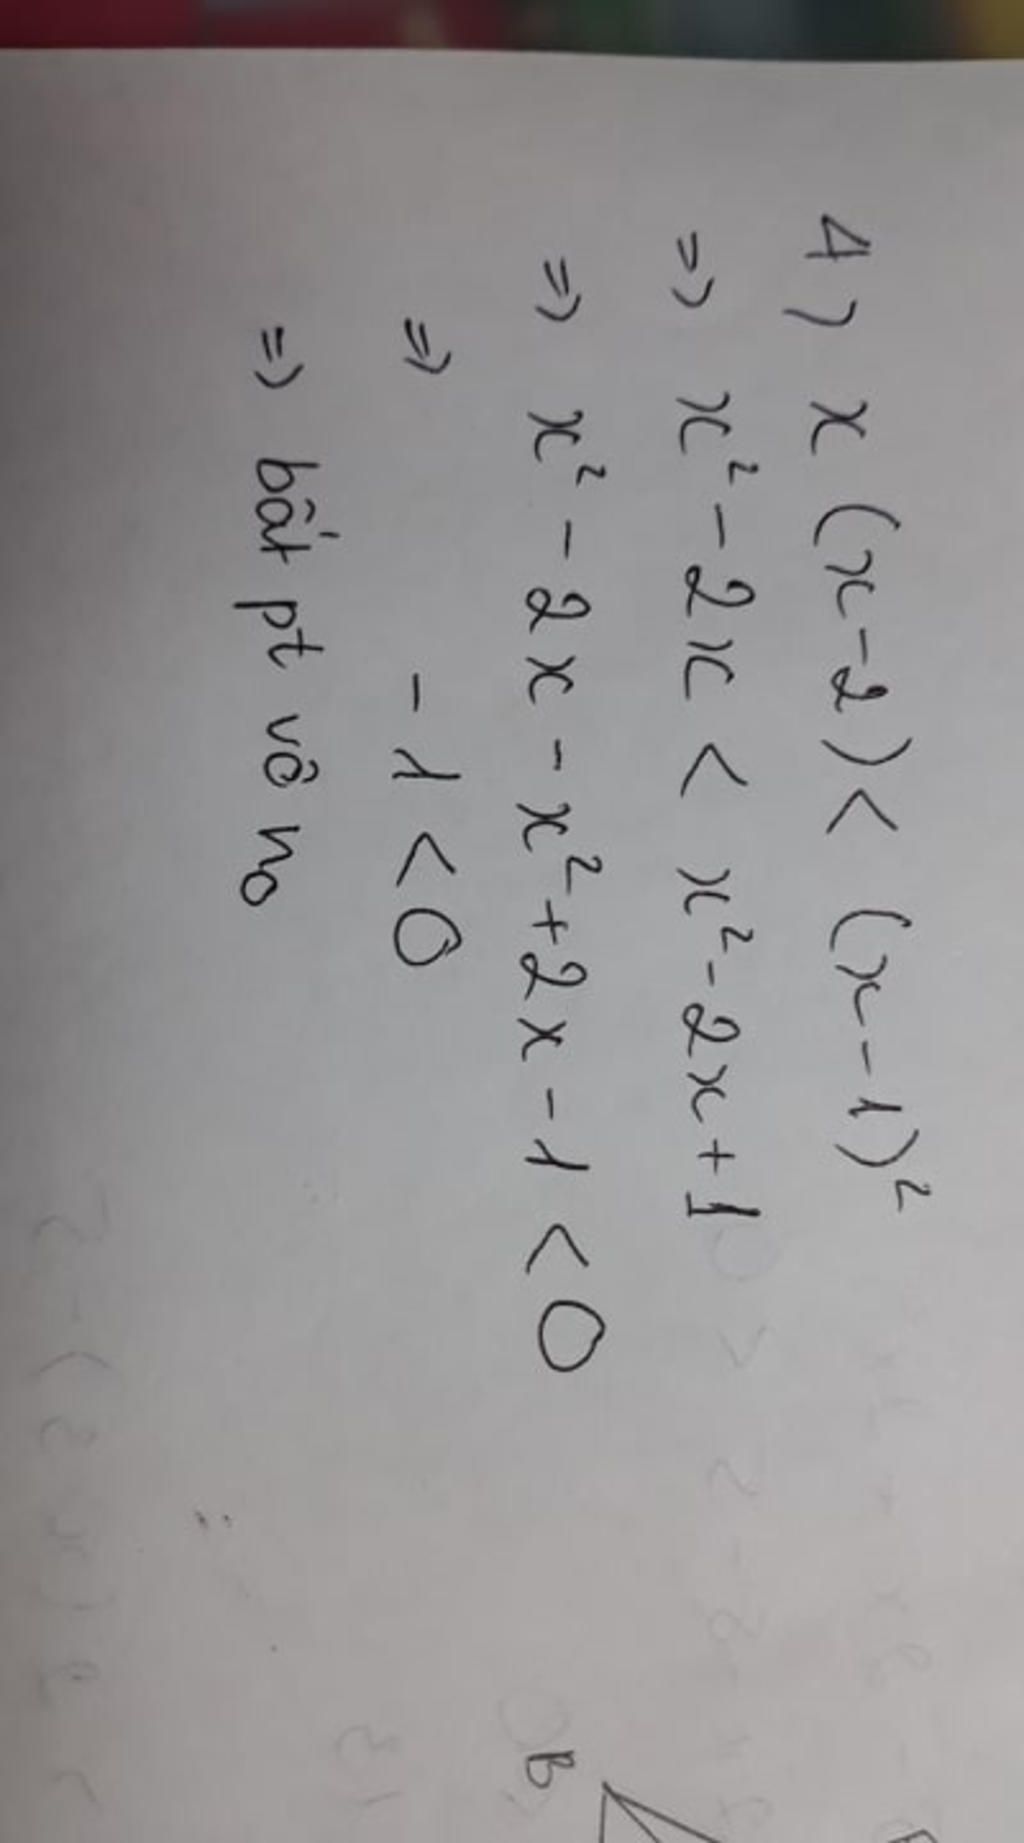 1) x (x-2) < (x-1)²
=> x² - 2x < x² - 2x + 1
=> x² - 2x - x² + 2x - 1 < 0
=> - 1 < 0
=> bất pt vô n₀
B